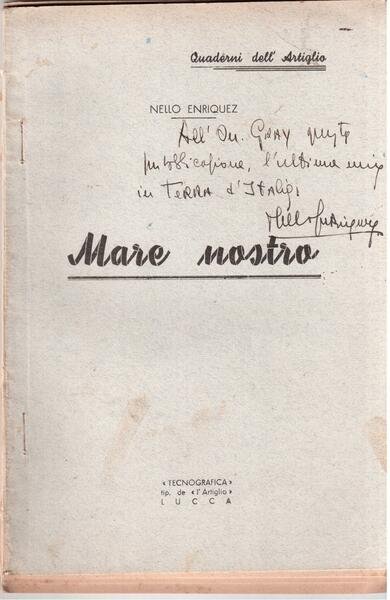 Quaderni dell' Artiglio
NELLO ENRIQUEZ
All' On. GRAY questa
pubblicazione, l'ultima mia
in TERRA d'ITALIA
Nello Enriquez
Mare nostro
« TECNOGRAFICA »
tip. de « l'Artiglio »
LUCCA